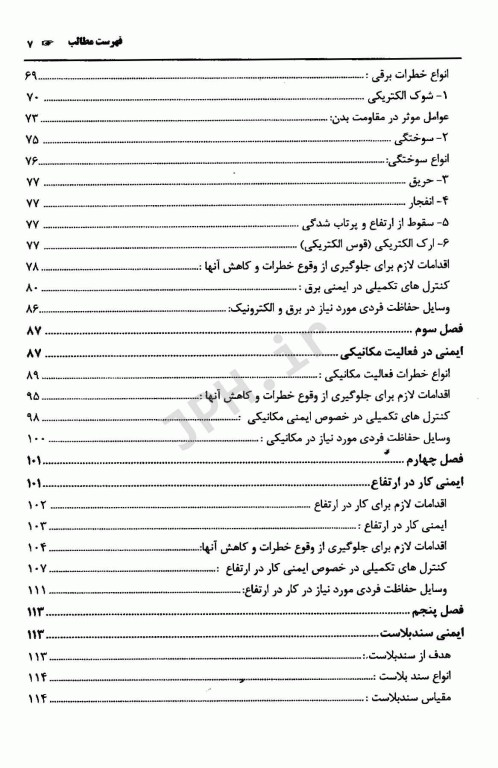 فهرست مطالب ☞ ۷
انواع خطرات برقی :................۶۹
۱- شوک الکتریکی ................ ۷۰
عوامل موثر در مقاومت بدن:................ ۷۳
۲- سوختگی ................ ۷۵
انواع سوختگی:................ ۷۶
۳- حریق ................ ۷۷
۴- انفجار ................ ۷۷
۵- سقوط از ارتفاع و پرتاب شدگی ................ ۷۷
۶- ارک الکتریکی (قوس الکتریکی) ................ ۷۷
اقدامات لازم برای جلوگیری از وقوع خطرات و کاهش آنها :................ ۷۸
کنترل های تکمیلی در ایمنی برق :................ ۸۰
وسایل حفاظت فردی مورد نیاز در برق و الکترونیک:................ ۸۶
فصل سوم ................ ۸۷
ایمنی در فعالیت مکانیکی ................ ۸۷
انواع خطرات فعالیت مکانیکی :................ ۸۹
اقدامات لازم برای جلوگیری از وقوع خطرات و کاهش آنها :................ ۹۵
کنترل های تکمیلی در خصوص ایمنی مکانیکی :................ ۹۸
وسایل حفاظت فردی مورد نیاز در مکانیکی :................ ۱۰۰
فصل چهارم ................ ۱۰۱
ایمنی کار در ارتفاع................ ۱۰۱
اقدامات لازم برای کار در ارتفاع ................ ۱۰۲
ایمنی کار در ارتفاع :................ ۱۰۳
اقدامات لازم برای جلوگیری از وقوع خطرات و کاهش آنها:................ ۱۰۴
کنترل های تکمیلی در خصوص ایمنی کار در ارتفاع :................ ۱۰۷
وسایل حفاظت فردی مورد نیاز در کار در ارتفاع:................ ۱۱۱
فصل پنجم ................ ۱۱۳
ایمنی سندبلاست................ ۱۱۳
هدف از سندبلاست :................ ۱۱۳
انواع سند بلاست :................ ۱۱۴
مقیاس سندبلاست :................ ۱۱۴
JPH.ir